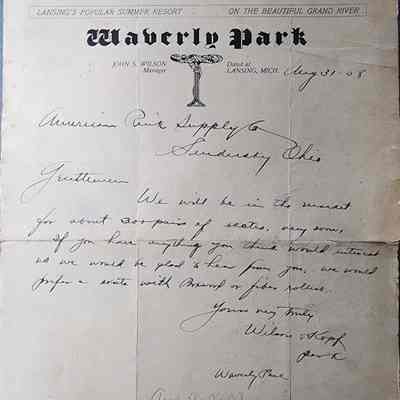 LANSING'S POPULAR SUMMER RESORT ON THE BEAUTIFUL GRAND RIVER
Waverly Park
JOHN S. WILSON
Manager
Dated at
LANSING, MICH. Aug 31-08
American Rink Supply Co
Sandusky Ohio
Gentlemen
We will be in the market
for about 300 pairs of skates, very soon,
If you have anything you think would interest
us we would be glad to hear from you, we would
prefer a skate with Boxwood or fiber rollers.
Yours very truly
Wilson & Kopf
Waverly Park